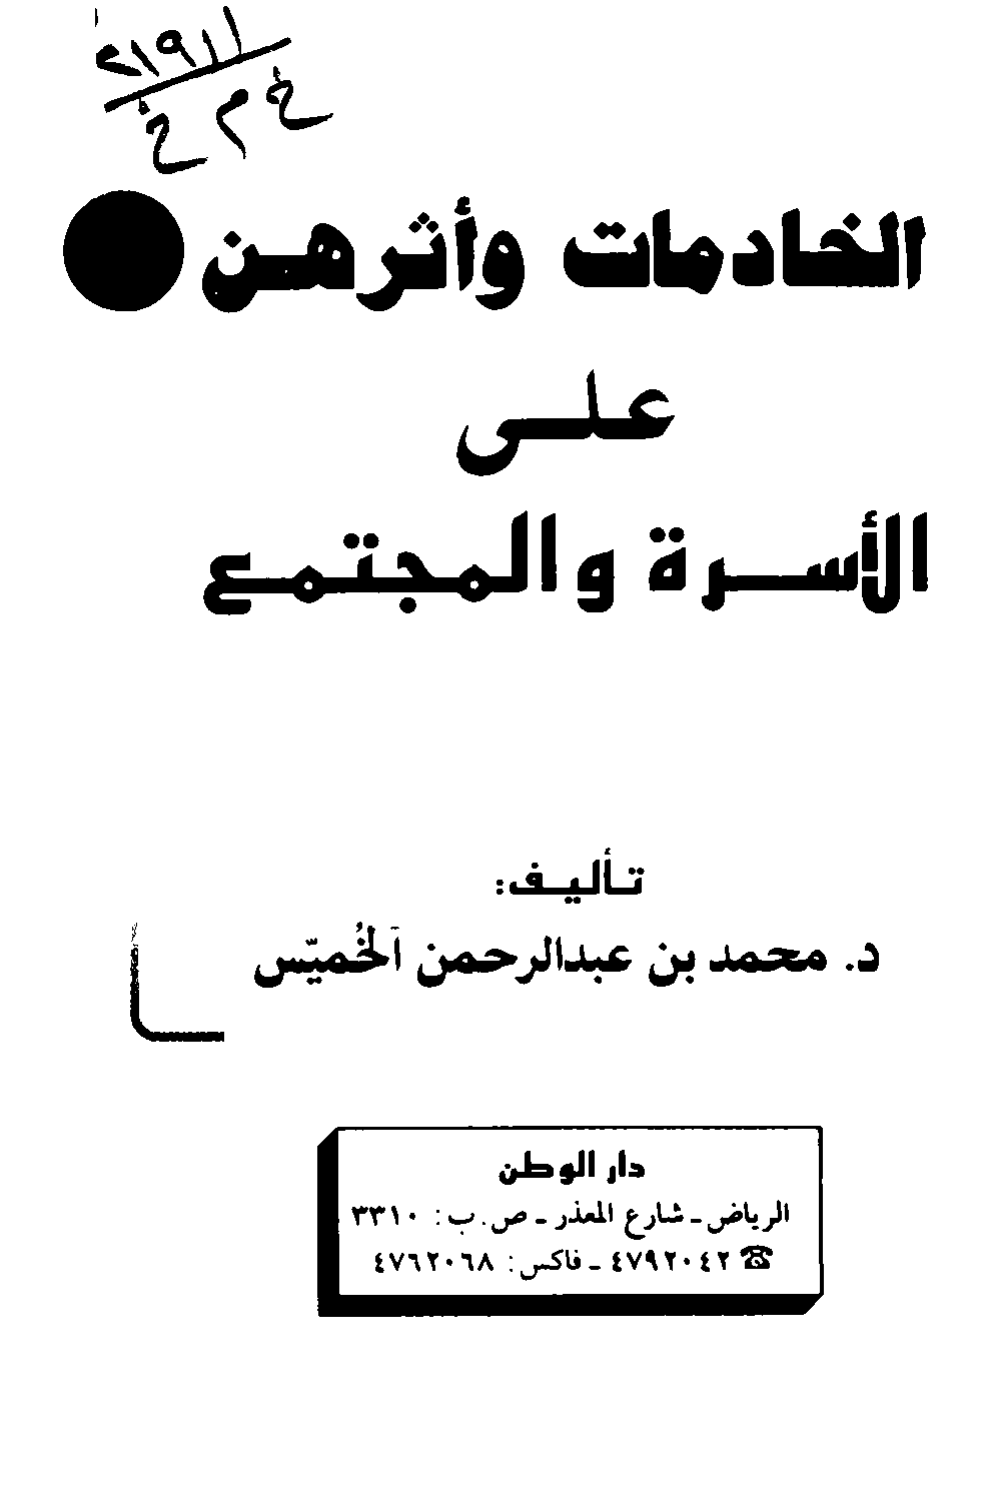 ٢١٩,١١
خ م خ
الخادمات وأثرهن
على
الأسرة والمجتمع
تأليف:
د. محمد بن عبدالرحمن آلخُميّس
دار الوطن
الرياض ـ شارع المعذر ـ ص. ب: ٣٣١٠
☎ ٤٧٩٢٠٤٢ ـ فاكس: ٤٧٦٢٠٦٨